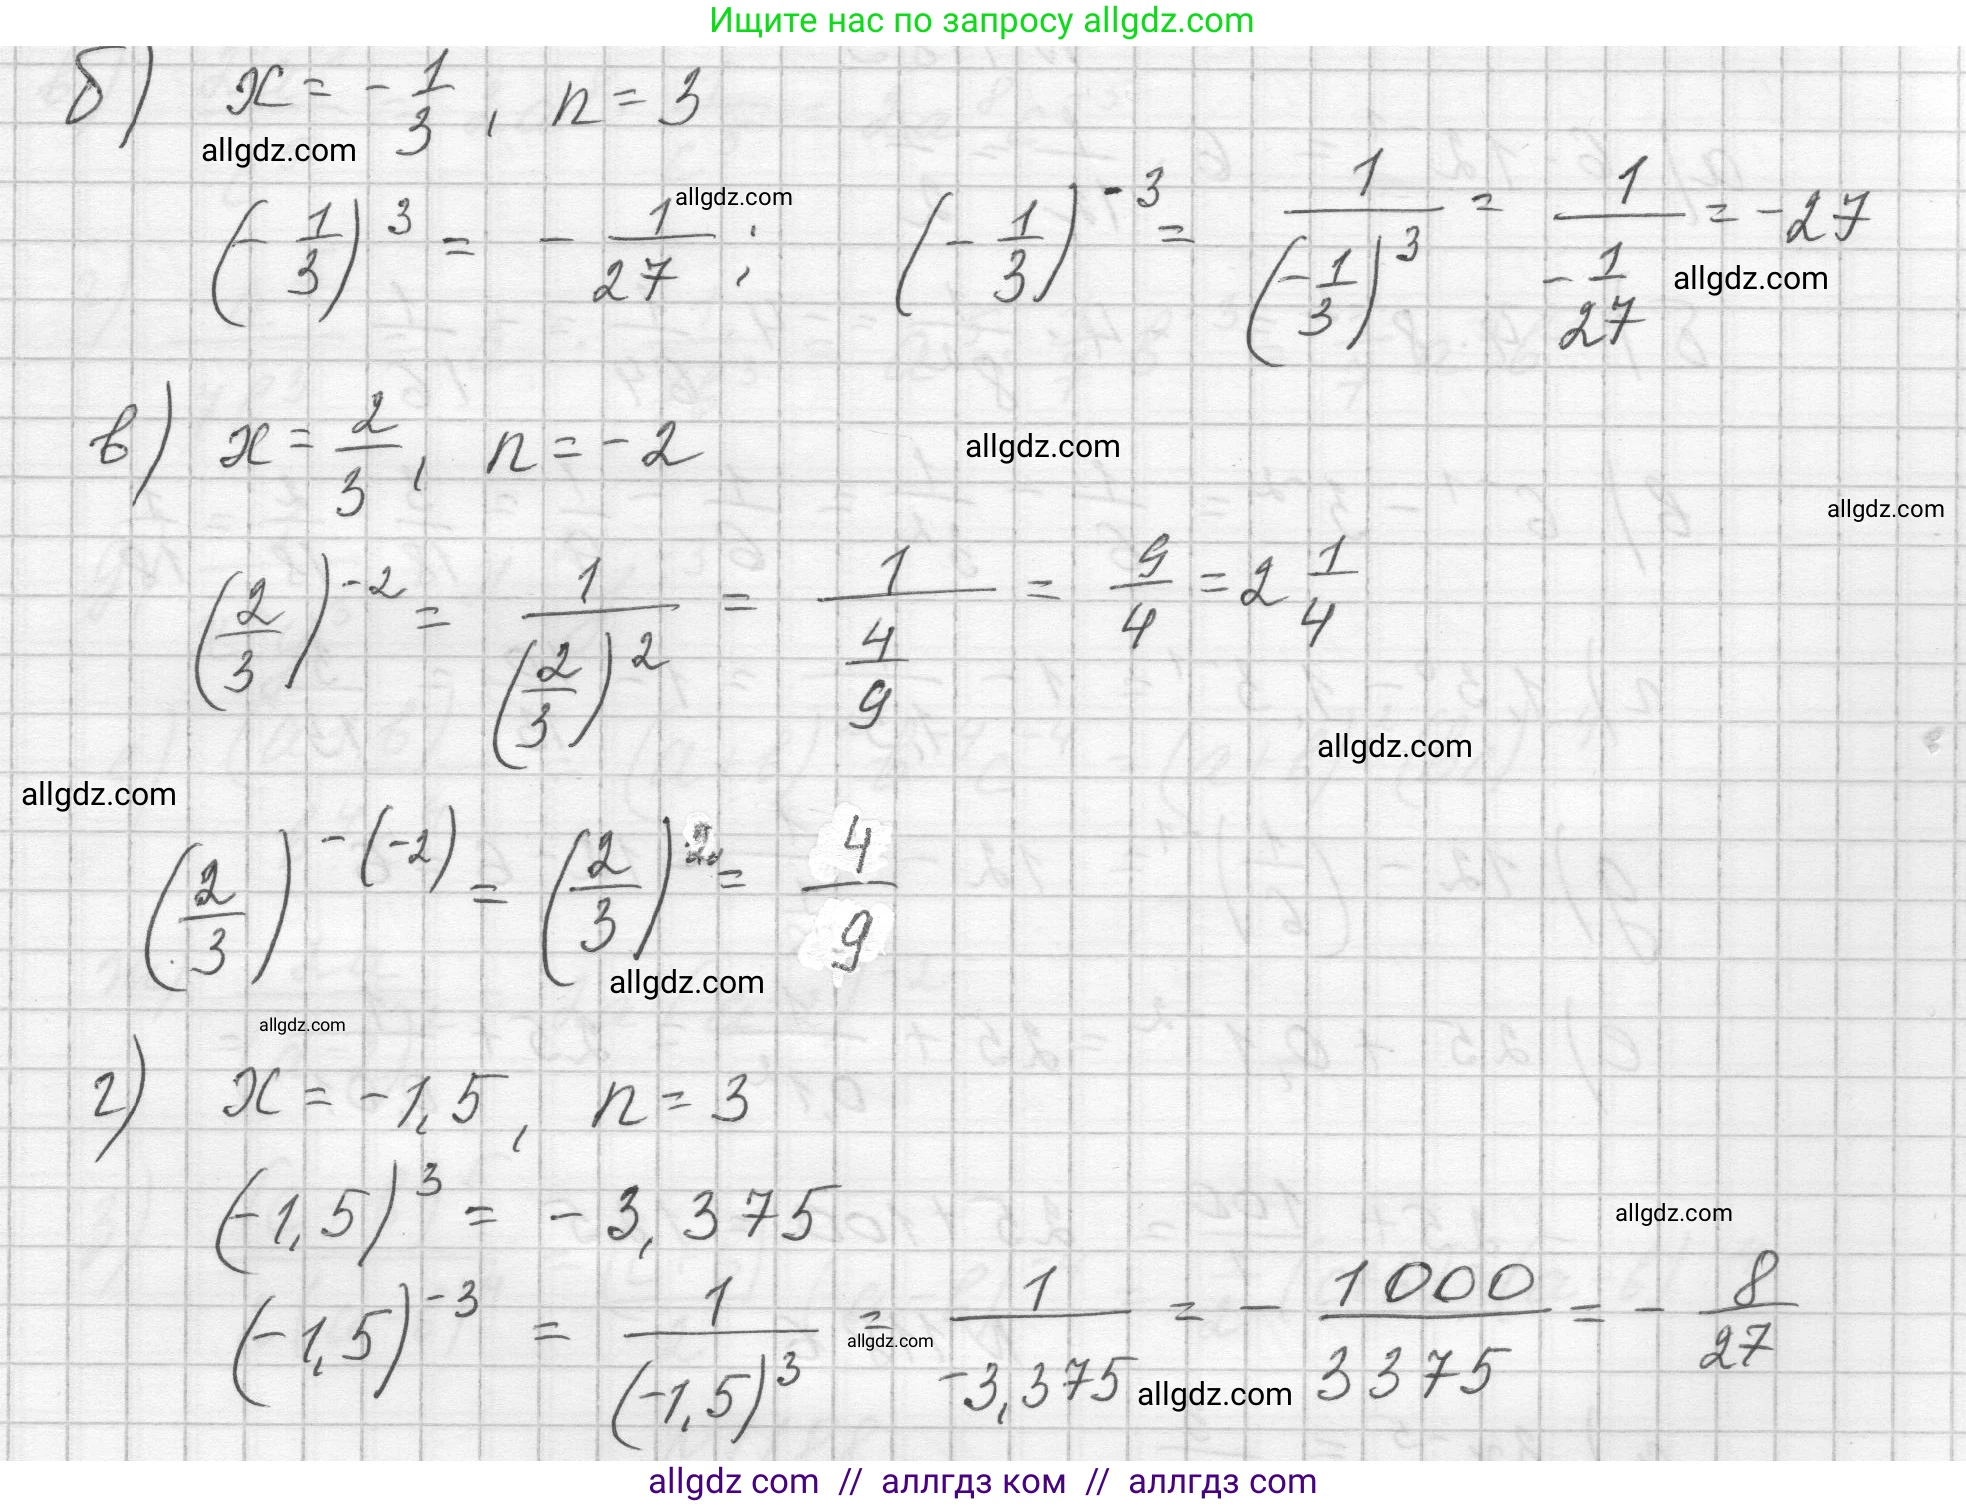 Ищите нас по запросу allgdz.com
б) x = -1/3, n = 3
allgdz.com
allgdz.com
(-1/3)^3 = -1/27; (-1/3)^-3 = 1/(-1/3)^3 = 1/(-1/27) = -27
allgdz.com
в) x = 2/3, n = -2
allgdz.com
allgdz.com
(2/3)^-2 = 1/(2/3)^2 = 1/(4/9) = 9/4 = 2 1/4
allgdz.com
allgdz.com
(2/3)^-(-2) = (2/3)^2 = 4/9
allgdz.com
allgdz.com
г) x = -1,5, n = 3
(-1,5)^3 = -3,375
allgdz.com
(-1,5)^-3 = 1/(-1,5)^3 = 1/-3,375 = -1000/3375 = -8/27
allgdz.com
allgdz.com
allgdz com // аллгдз ком // аллгдз com